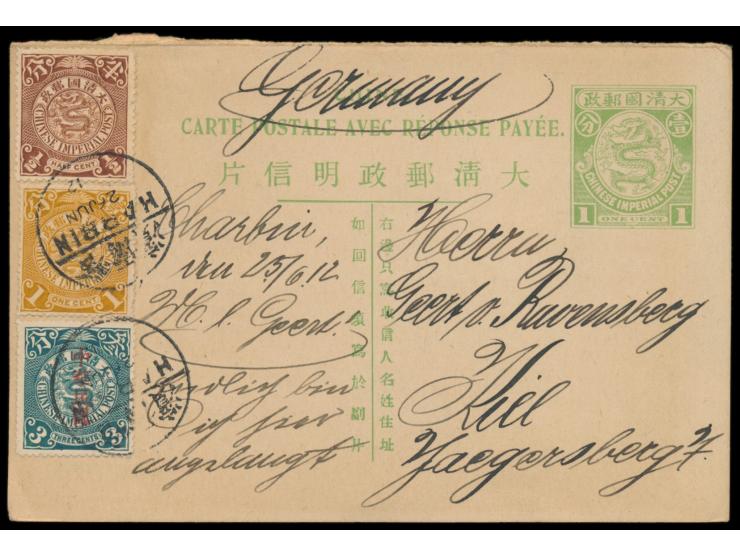 Germany
CARTE POSTALE AVEC RÉPONSE PAYÉE.
片信明政郵清大
政郵國清大
分 壹
CHINESE IMPERIAL POST
1 ONE CENT 1
分 半
政郵國清大
CHINESE IMPERIAL POST
½ HALF CENT ½
1 ONE CENT 1
3 THREE CENTS 3
HARBIN
26 JUN
12
Charbin,
den 25/6.12
M. l. Geert.
Endlich bin
ich hier
angelangt
右邊只寫收信人名姓住址
如回信須寫於副片
Herrn
Geert v. Ravensberg
Kiel
Jaegersberg 7.